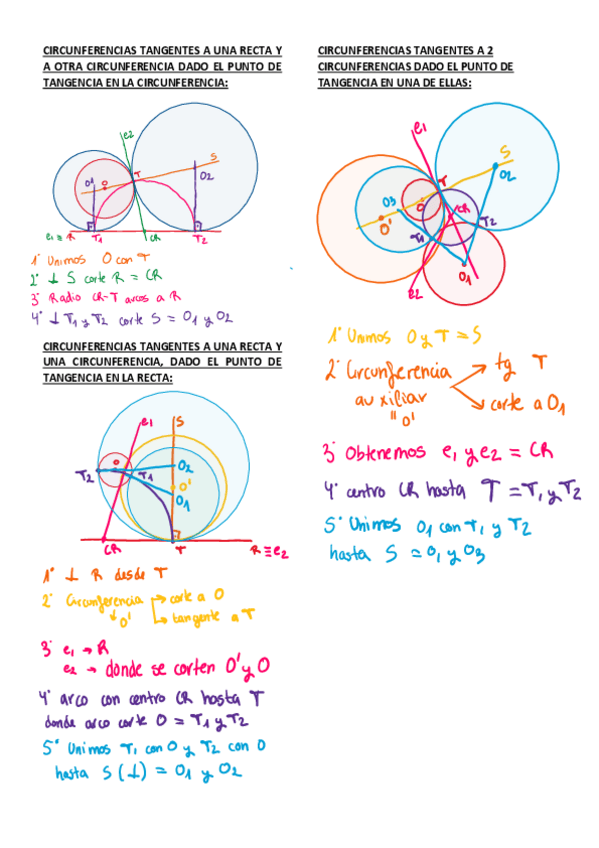 CIRCUNFERENCIAS TANGENTES A UNA RECTA Y
A OTRA CIRCUNFERENCIA DADO EL PUNTO DE
TANGENCIA EN LA CIRCUNFERENCIA:
e2
S
O1
O
T
O2
e1 ≡ R
T1
CR
T2
1° Unimos O con T
2° ⊥ S corte R = CR
3° Radio CR-T arcos a R
4° ⊥ T1 y T2 corte S = O1 y O2
CIRCUNFERENCIAS TANGENTES A UNA RECTA Y
UNA CIRCUNFERENCIA, DADO EL PUNTO DE
TANGENCIA EN LA RECTA:
e1
S
O
O2
T2
T1
O'
O1
CR
T
R ≡ e2
1° ⊥ R desde T
2° Circunferencia → corte a O
↓ O' → tangente a T
3° e1 → R
e2 → donde se corten O' y O
4° arco con centro CR hasta T
donde arco corte O = T1 y T2
5° Unimos T1 con O y T2 con O
hasta S (⊥) = O1 y O2
CIRCUNFERENCIAS TANGENTES A 2
CIRCUNFERENCIAS DADO EL PUNTO DE
TANGENCIA EN UNA DE ELLAS:
e1
S
T
O2
O3
O
CR
O'
T2
T1
O1
e2
1° Unimos O y T = S
2° Circunferencia → tg T
auxiliar → corte a O1
" O'
3° Obtenemos e1 y e2 = CR
4° centro CR hasta T = T1 y T2
5° Unimos O1 con T1 y T2
hasta S = O1 y O3